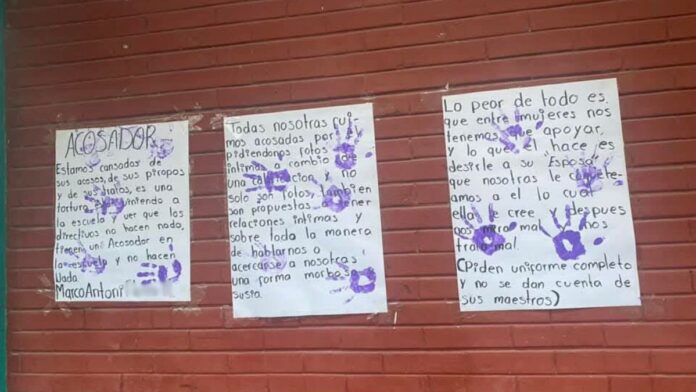 ACOSADOR
Estamos cansadas de
sus acosos, de sus piropos
y de sus tratos, es una
tortura viniendo a
la escuela y ver que los
directivos no hacen nada,
tienen un Acosador en
la escuela y no hacen
nada.
Marco Antoni
Todas nosotras fui-
mos acosadas por el
pidiendonos fotos
intimas a cambio de
una y no
solo son fotos, tambien
son propuestas tener
relaciones intimas y
sobre todo la manera
de hablarnos o
acercarse a nosotras
una forma morbosa
susia.
Lo peor de todo es
que entre mujeres nos
tenemos que apoyar,
y lo que el hace es
desirle a su Esposa
que nosotras le
amos a el lo cual
ella le cree y despues
nos mira mal y nos
trata mal.
(Piden uniforme completo
y no se dan cuenta de
sus maestros)